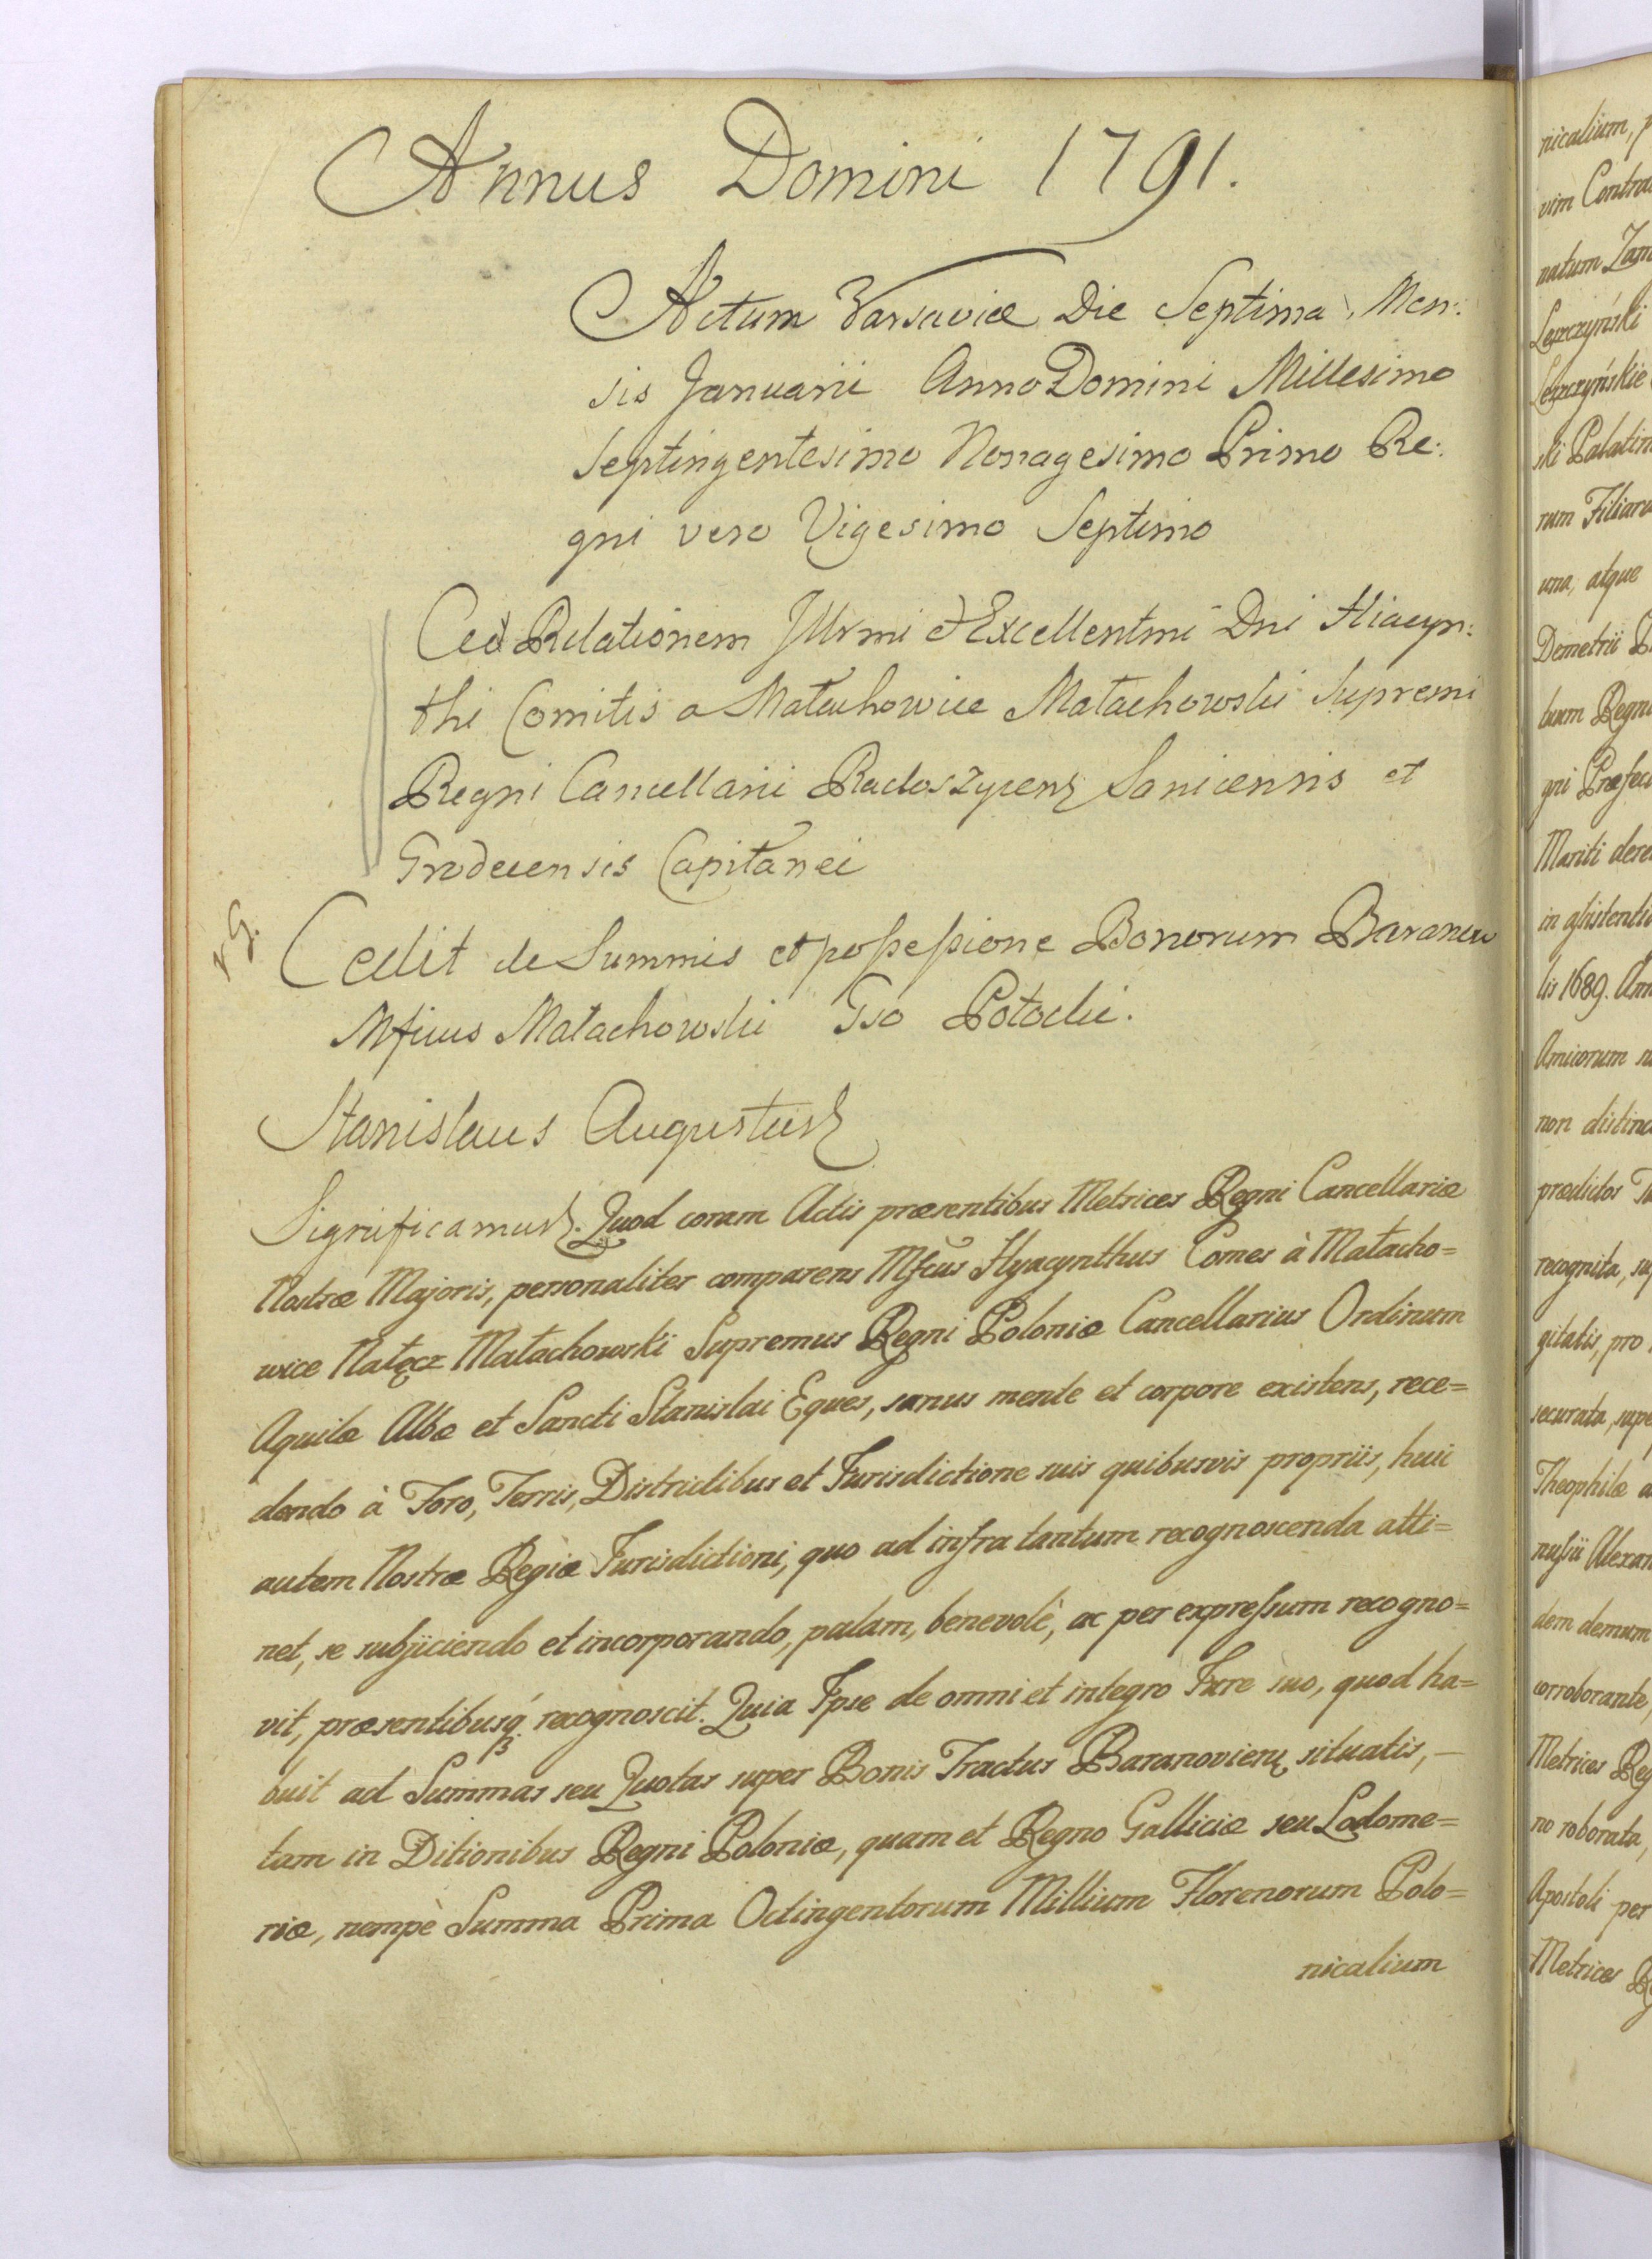 Annus Domini 1791.
Actum Varsaviæ Die Septima Men:
sis Januarii Anno Domini Millesimo
Septingentesimo Nonagesimo Primo Re:
gni vero Vigesimo Septimo
Ad Relationem Illrmi et Excellentmi Dni Hiacyn:
thi Comitis a Małachowice Małachowski Supremi
Regni Cancellarii Radoszycens Sanicensis et
Grodecensis Capitanei
Cedit de Summis et possessione Bonorum Baranow
Mficus Małachowski Gso Potocki.
Stanislaus Augustus
Significamus. Quod coram Actis præsentibus Metrices Regni Cancellariæ
Nostræ Majoris, personaliter comparens Mfcus Hyacynthus Comes à Małacho=
wice Nałęcz Małachowski Supremus Regni Poloniæ Cancellarius Ordinum
Aquilæ Albæ et Sancti Stanislai Eques, sanus mente et corpore existens, rece=
dendo à Foro, Terris, Districtibus et Jurisdictione suis quibusvis propriis, huic
autem Nostræ Regiæ Jurisdictioni, quo ad infra tantum recognoscenda atti=
net, se subjiciendo et incorporando, palam, benevolè, ac per expressum recogno=
vit, præsentibusq́ recognoscit. Quia Ipse de omni et integro Jure suo, quod ha=
buit ad Summas seu Quotas super Bonis Tractus Baranoviens, situatis, –
tam in Ditionibus Regni Poloniæ, quam et Regno Galliciæ seu Lodome=
riæ, nempè Summa Prima Octingentorum Millium Florenorum Polo=
nicalium
nicalium,
vim
natum
Leszczyński
Leszczyńskie
ski
rum
una, atque
Demetrii
buum
gni
Mariti
in
lis 1689.
Amicorum
non
prædictos
recognita,
gitatis, pro
securata,
Theophilæ
nussii
dem demum
corroborante,
Metrices
no roborata,
Apostoli per
Metrices